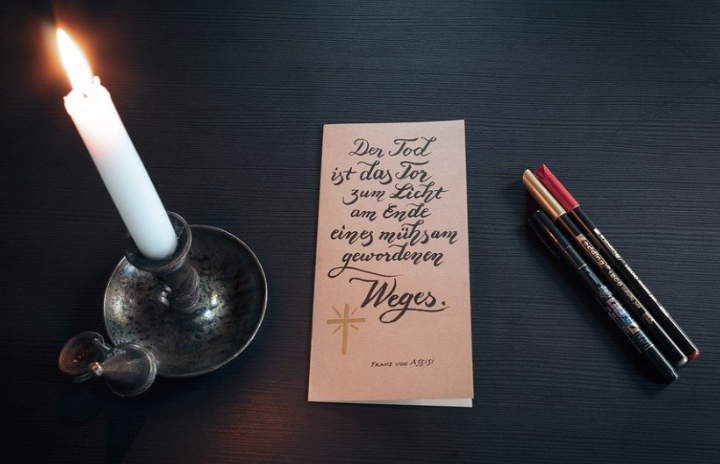 Der Tod
ist das Tor
zum Licht
am Ende
eines mühsam
gewordenen
Weges.
Franz von Assisi
edding